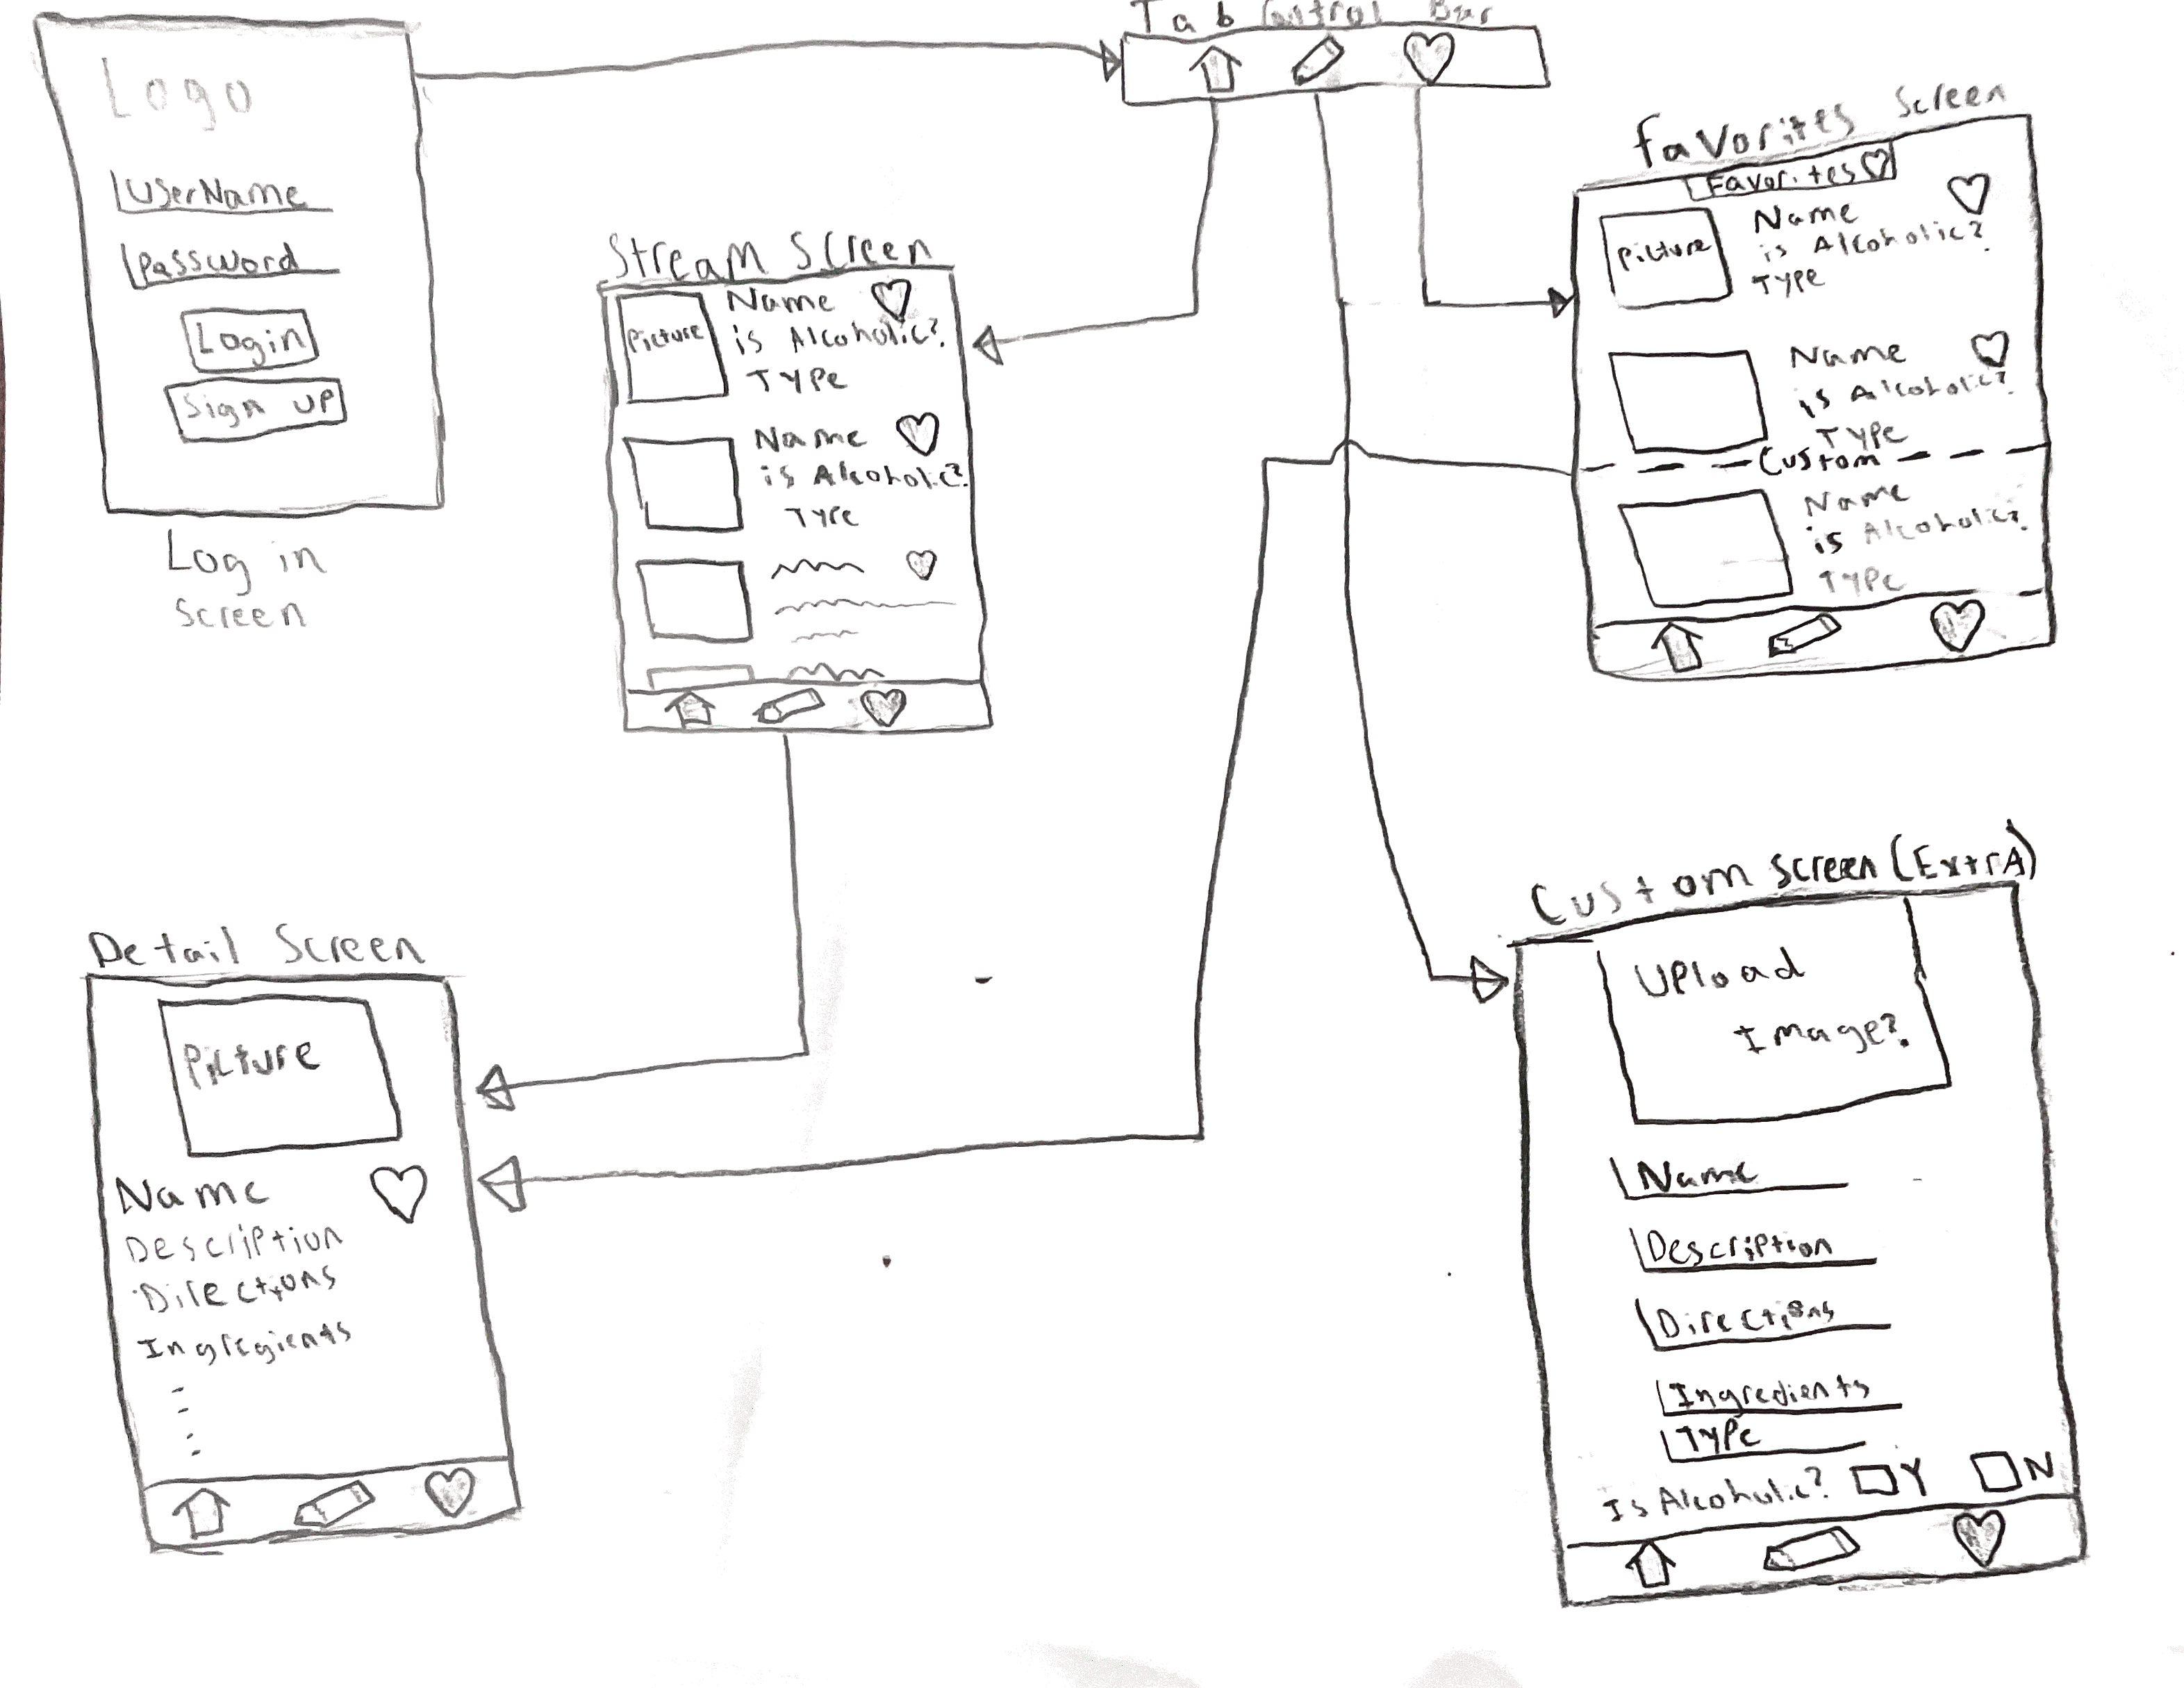 Tab Control Bar
Logo
UserName
Password
Login
Sign UP
Log in
Screen
Stream Screen
Picture
Name
is Alcoholic?
TYPe
Name
is Alcoholic?
TYPe
Favorites Screen
Favorites
Picture
Name
is Alcoholic?
TYPe
Name
is Alcoholic?
TYPe
Custom
Name
is Alcoholic?
TYPe
Detail Screen
Picture
Name
Description
Directions
Ingregients
Custom Screen (ExtrA)
UPload
Image?
Name
Description
Directions
Ingredients
TYPe
Is Alcoholic? Y N